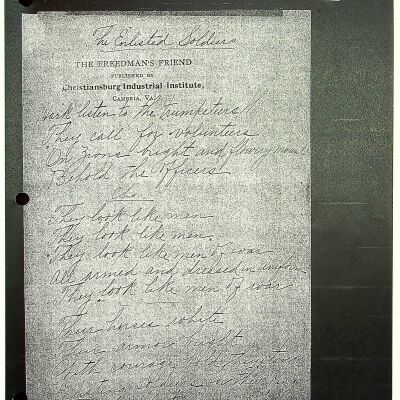 The Enlisted Soldiers
THE FREEDMAN'S FRIEND
PUBLISHED BY
Christiansburg Industrial Institute,
CAMBRIA, VA.
Hark listen to the trumpeters
They call for volunteers
On Zions bright and flowery mount
Behold the officers
Cho
They look like men
They look like men
They look like men of war
All armed and dressed in uniform
They look like men of war
Their horses white
Their armor bright
With courage